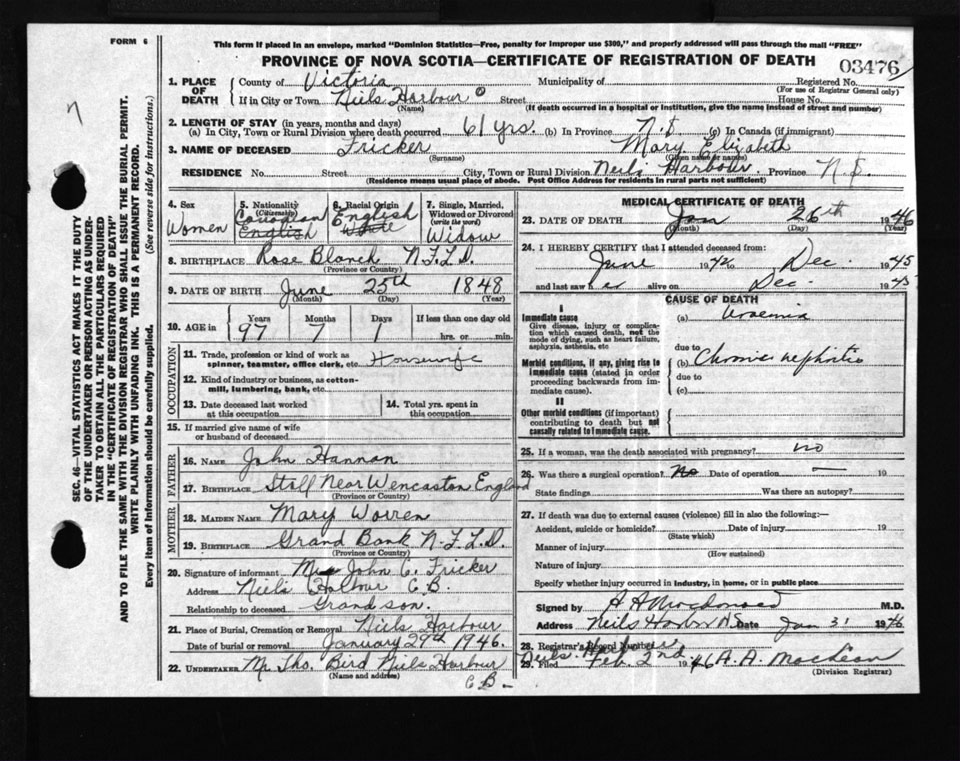 FORM 6
This form if placed in an envelope, marked "Dominion Statistics—Free, penalty for improper use $300," and properly addressed will pass through the mail "FREE"
PROVINCE OF NOVA SCOTIA—CERTIFICATE OF REGISTRATION OF DEATH
03476
1. PLACE OF DEATH
County of Victoria Municipality of Registered No.
(For use of Registrar General only)
If in City or Town Niels Harbour Street House No.
(Name) (If death occurred in a hospital or institution, give the name instead of street and number)
2. LENGTH OF STAY (in years, months and days)
(a) In City, Town or Rural Division where death occurred 61 yrs. (b) In Province (c) In Canada (if immigrant)
3. NAME OF DECEASED Fricker Mary Elizabeth
(Surname) (Given name or names)
RESIDENCE No. Street City, Town or Rural Division Neils Harbour. Province N.S.
(Residence means usual place of abode. Post Office Address for residents in rural parts not sufficient)
4. Sex Women
5. Nationality (Citizenship) Canadian English
6. Racial Origin English White
7. Single, Married, Widowed or Divorced (write the word) Widow
8. BIRTHPLACE Rose Blanch N.F.L.D.
(Province or Country)
9. DATE OF BIRTH June 25th 1848
(Month) (Day) (Year)
10. AGE in Years Months Days If less than one day old
97 7 1 hrs. or min.
OCCUPATION
11. Trade, profession or kind of work as spinner, teamster, office clerk, etc. Housewife
12. Kind of industry or business, as cotton-mill, lumbering, bank, etc.
13. Date deceased last worked at this occupation
14. Total yrs. spent in this occupation
15. If married give name of wife or husband of deceased
FATHER
16. NAME John Hannan
17. BIRTHPLACE Stall Near Wencaston England
(Province or Country)
MOTHER
18. MAIDEN NAME Mary Worren
19. BIRTHPLACE Grand Bank N.F.L.D.
(Province or Country)
20. Signature of informant John C. Fricker
Address Niels Harbour C.B.
Relationship to deceased Grandson.
21. Place of Burial, Cremation or Removal Niels Harbour
Date of burial or removal January 29th 1946.
22. UNDERTAKER Mr. Tho. Bird Niels Harbour
(Name and address)
C B
MEDICAL CERTIFICATE OF DEATH
23. DATE OF DEATH Jan 26th 1946
(Month) (Day) (Year)
24. I HEREBY CERTIFY that I attended deceased from:
June 1942 to Dec. 1945
and last saw her alive on Dec. 1945
CAUSE OF DEATH
I
Immediate cause
Give disease, injury or complication which caused death, not the mode of dying, such as heart failure, asphyxia, asthenia, etc
(a) Uraemia
due to
Morbid conditions, if any, giving rise to immediate cause (stated in order proceeding backwards from immediate cause).
(b) Chronic nephritis
due to
(c)
II
Other morbid conditions (if important) contributing to death but not causally related to immediate cause.
25. If a woman, was the death associated with pregnancy? no
26. Was there a surgical operation? No Date of operation — 19
State findings Was there an autopsy?
27. If death was due to external causes (violence) fill in also the following:—
Accident, suicide or homicide? Date of injury 19
(State which)
Manner of injury
(How sustained)
Nature of injury
Specify whether injury occurred in industry, in home, or in public place
Signed by A A Macdonald M.D.
Address Neils Harbor N.S. Date Jan 31 1946
28. Registrar's Record Number
29. Filed Feb 2nd 1946 A. A. MacLean
(Division Registrar)
SEC. 46—VITAL STATISTICS ACT MAKES IT THE DUTY
OF THE UNDERTAKER OR PERSON ACTING AS UNDER-
TAKER TO OBTAIN ALL THE PARTICULARS REQUIRED
IN THE "CERTIFICATE OF REGISTRATION OF DEATH"
AND TO FILE THE SAME WITH THE DIVISION REGISTRAR WHO SHALL ISSUE THE BURIAL PERMIT.
WRITE PLAINLY WITH UNFADING INK. THIS IS A PERMANENT RECORD.
Every item of information should be carefully supplied. (See reverse side for instructions.)